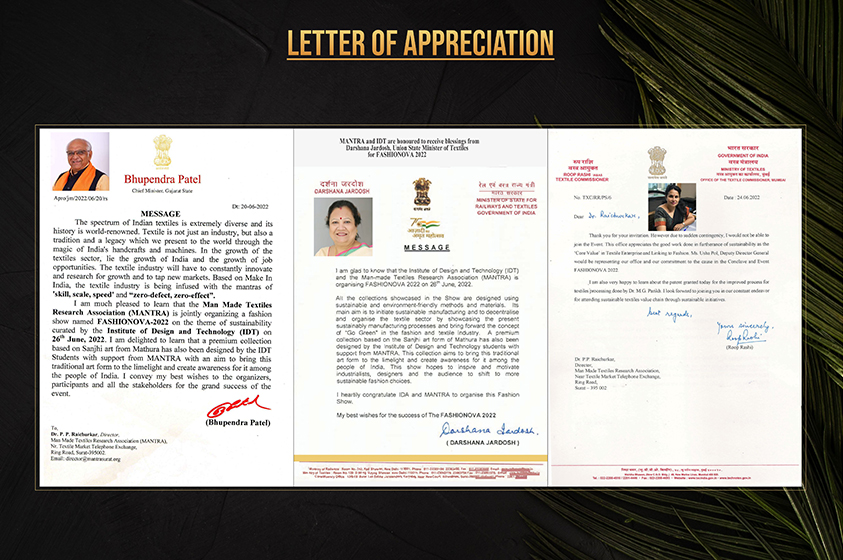 LETTER OF APPRECIATION
Bhupendra Patel
Chief Minister, Gujarat State
Apro/jm/2022/06/20/rs
Dt: 20-06-2022
MESSAGE
The spectrum of Indian textiles is extremely diverse and its
history is world-renowned. Textile is not just an industry, but also a
tradition and a legacy which we present to the world through the
magic of India's handcrafts and machines. In the growth of the
textiles sector, lie the growth of India and the growth of job
opportunities. The textile industry will have to constantly innovate
and research for growth and to tap new markets. Based on Make In
India, the textile industry is being infused with the mantras of
'skill, scale, speed' and "zero-defect, zero-effect".
I am much pleased to learn that the Man Made Textiles
Research Association (MANTRA) is jointly organizing a fashion
show named FASHIONOVA-2022 on the theme of sustainability
curated by the Institute of Design and Technology (IDT) on
26th June, 2022. I am delighted to learn that a premium collection
based on Sanjhi art from Mathura has also been designed by the IDT
Students with support from MANTRA with an aim to bring this
traditional art form to the limelight and create awareness for it among
the people of India. I convey my best wishes to the organizers,
participants and all the stakeholders for the grand success of the
event.
(Bhupendra Patel)
To,
Dr. P. P. Raichurkar, Director,
Man Made Textiles Research Association (MANTRA),
Nr. Textile Market Telephone Exchange,
Ring Road, Surat-395002.
Email: director@mantrasurat.org
MANTRA and IDT are honoured to receive blessings from
Darshana Jardosh, Union State Minister of Textiles
for FASHIONOVA 2022
दर्शना जरदोश
DARSHANA JARDOSH
रेल एवं वस्त्र राज्य मंत्री
MINISTER OF STATE FOR
RAILWAYS AND TEXTILES
GOVERNMENT OF INDIA
MESSAGE
I am glad to know that the Institute of Design and Technology (IDT)
and the Man-made Textiles Research Association (MANTRA) is
organising FASHIONOVA 2022 on 26th June, 2022.
All the collections showcased in the Show are designed using
sustainable and environment-friendly methods and materials. Its
main aim is to initiate sustainable manufacturing and to decentralise
and organise the textile sector by showcasing the present
sustainably manufacturing processes and bring forward the concept
of "Go Green" in the fashion and textile industry. A premium
collection based on the Sanjhi art form of Mathura has also been
designed by the Institute of Design and Technology students with
support from MANTRA. This collection aims to bring this traditional
art form to the limelight and create awareness for it among the
people of India. This show hopes to inspire and motivate
industrialists, designers and the audience to shift to more
sustainable fashion choices.
I heartily congratulate IDA and MANTRA to organise this Fashion
Show.
My best wishes for the success of The FASHIONOVA 2022
Darshana Jardosh.
( DARSHANA JARDOSH )
रूप राशि
वस्त्र आयुक्त
ROOP RASHI
TEXTILE COMMISSIONER
भारत सरकार
GOVERNMENT OF INDIA
वस्त्र मंत्रालय
MINISTRY OF TEXTILES
OFFICE OF THE TEXTILE COMMISSIONER, MUMBAI
No. TXC/RR/PS/6
Date : 24.06.2022
Dear Dr. Raichurkar,
Thank you for your invitation. However due to sudden contingency, I would not be able to
join the Event. This office appreciates the good work done in furtherance of sustainability as the
'Core Value' in Textile Enterprise and Linking to Fashion. Ms. Usha Pol, Deputy Director General
would be representing our office and our commitment to the cause in the Conclave and Event
FASHIONOVA 2022
I am also very happy to learn about the patent granted today for the improved process for
textiles processing done by Dr. M.G. Parikh. I look forward to joining you in our constant endeavor
for attending sustainable textiles value chain through sustainable initiatives.
best regards,
Yours sincerely,
(Roop Rashi)
Dr. P.P. Raichurkar,
Director,
Man Made Textiles Research Association,
Near Textile Market Telephone Exchange,
Ring Road,
Surat – 395 002